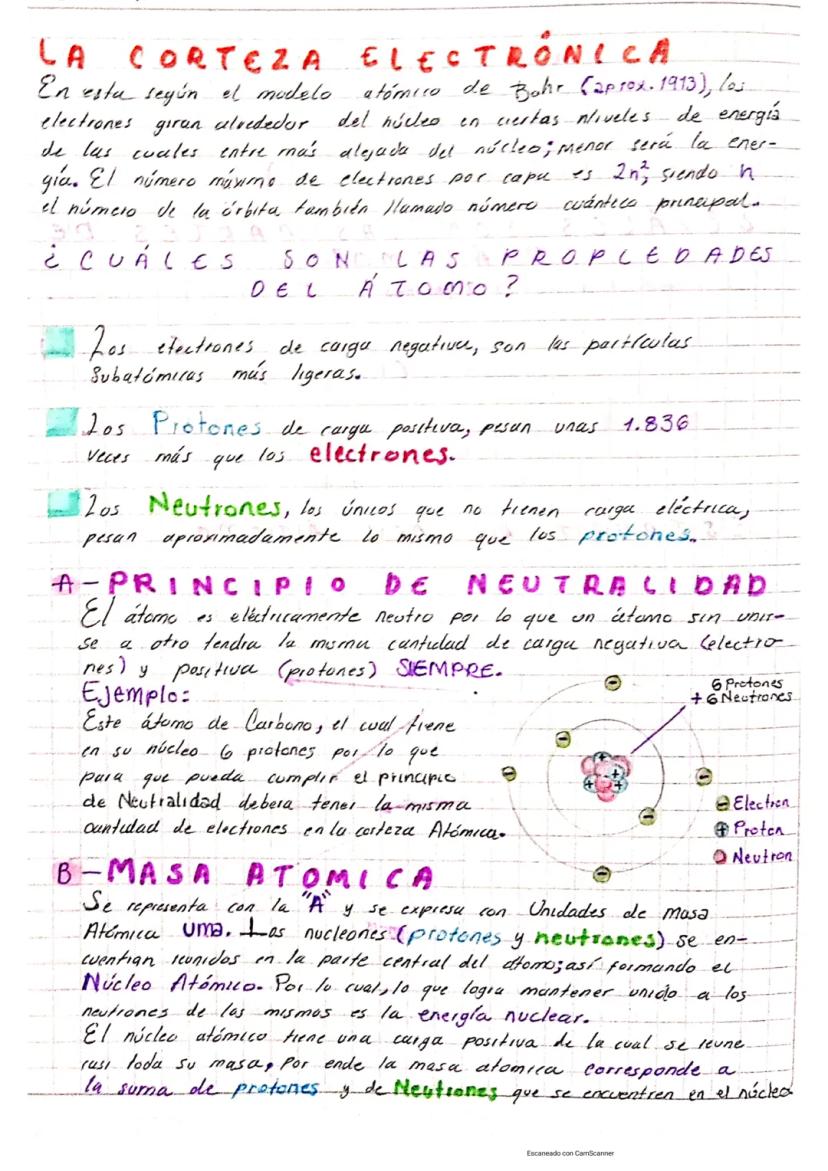 LA CORTEZA ELECTRÓNICA
En esta según el modelo atómico de Bohr (aprox. 1913), los
electrones giran alrededor del núcleo en ciertas niveles de energía
de las cuales entre más alejada del núcleo; menor será la ener-
gía. El número máximo de electrones por capa es 2n², siendo n
el número de la órbita también llamado número cuántico principal.
¿CUÁLES SON LAS PROPIEDADES
DEL ÁTOMO?
Los electrones de carga negativa, son las partículas
Subatómicas más ligeras.
Los Protones de carga positiva, pesan unas 1.836
veces más que los electrones.
Los Neutrones, los únicos que no tienen carga eléctrica,
pesan aproximadamente lo mismo que los protones.
A-PRINCIPIO DE NEUTRALIDAD
El átomo es eléctricamente neutro por lo que un átomo sin unir-
se a otro tendra la misma cantidad de carga negativa (electro-
nes) y positiva (protones) SIEMPRE.
Ejemplo:
Este átomo de Carbono, el cual tiene
en su núcleo 6 protones por lo que
para que pueda cumplir el principio
de Neutralidad debera tener la misma
cantidad de electrones en la corteza Atómica.
6 Protones
+6 Neutrones
Electron
Proton
Neutron
B-MASA ATOMICA
Se representa con la "A" y se expresa con Unidades de masa
Atómica uma. Los nucleones (protones y neutrones) se en-
cuentran reunidos en la parte central del átomo; así formando el
Núcleo Atómico. Por lo cual, lo que logra mantener unido a los
neutrones de los mismos es la energía nuclear.
El núcleo atómico tiene una carga positiva de la cual se reune
casi toda su masa, Por ende la masa atomica corresponde a
la suma de protones y de Neutrones que se encuentren en el núcleo
Escaneado con CamScanner